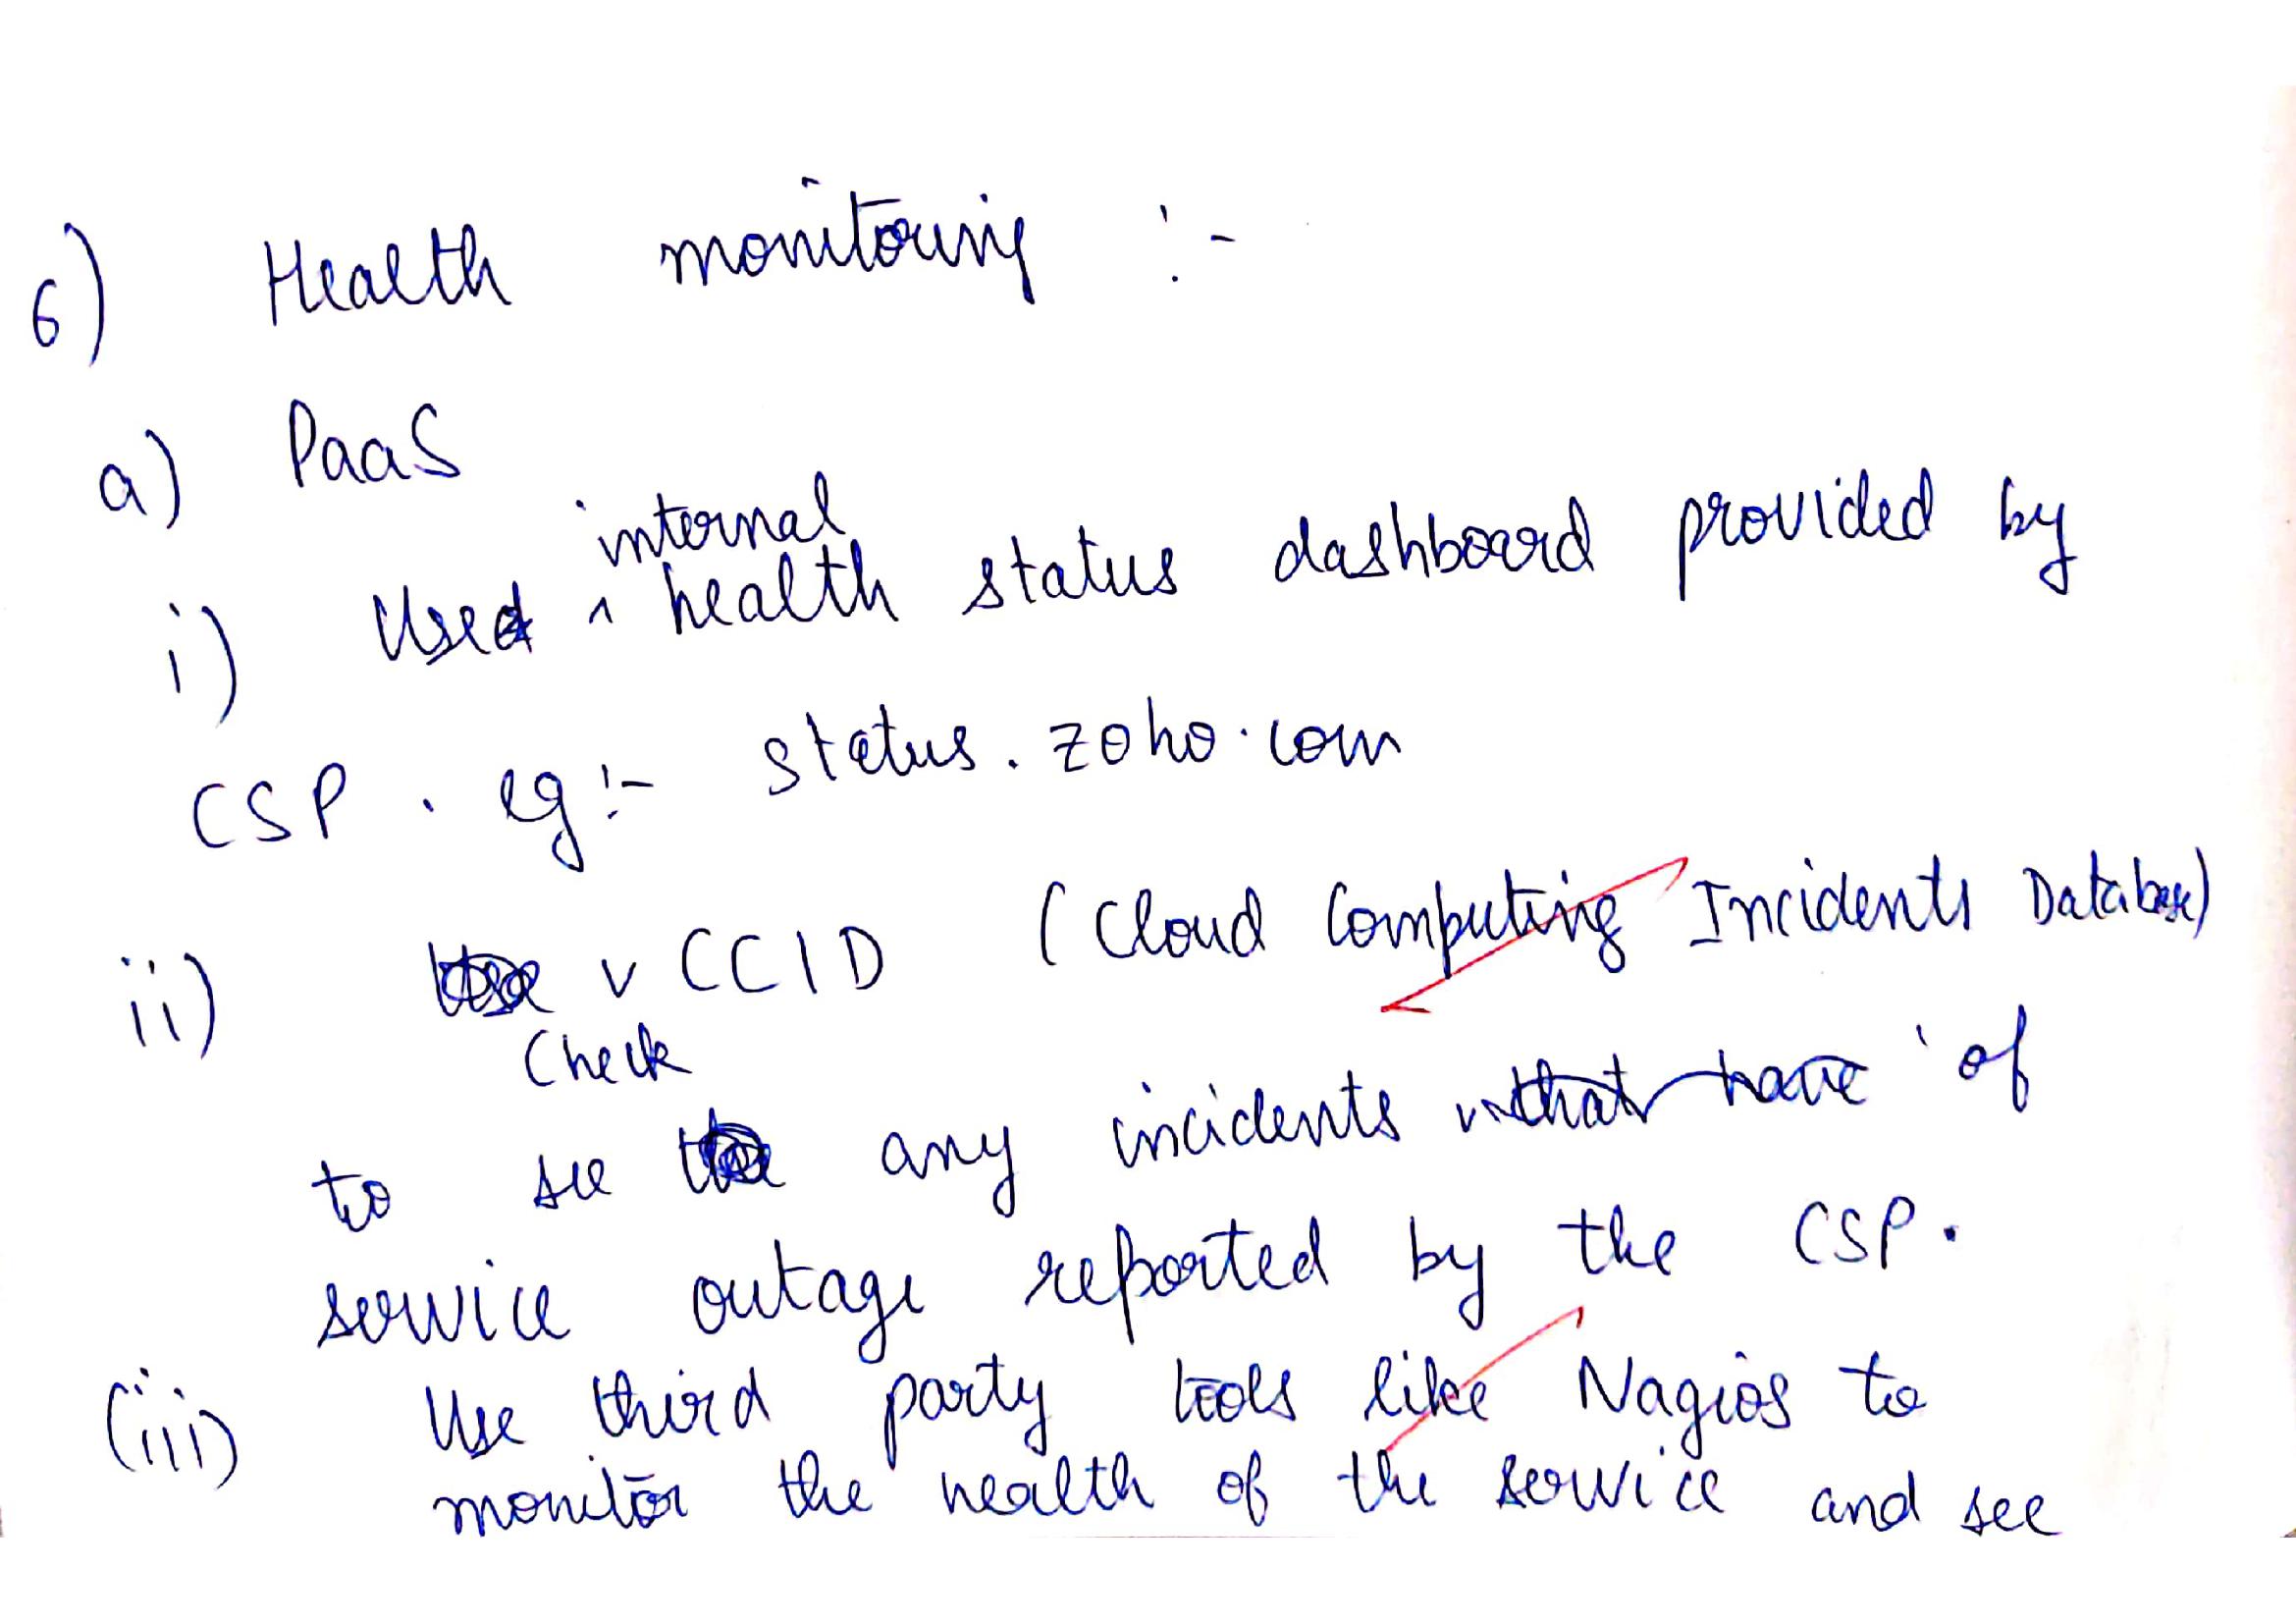 6) Health monitoring :-
a) PaaS
i) Use internal health status dashboard provided by
CSP . eg :- status.zoho.com
ii) Check CCID (Cloud Computing Incidents Database)
to see any incidents of
service outage reported by the CSP.
(iii) Use third party tools like Nagios to
monitor the health of the service and see